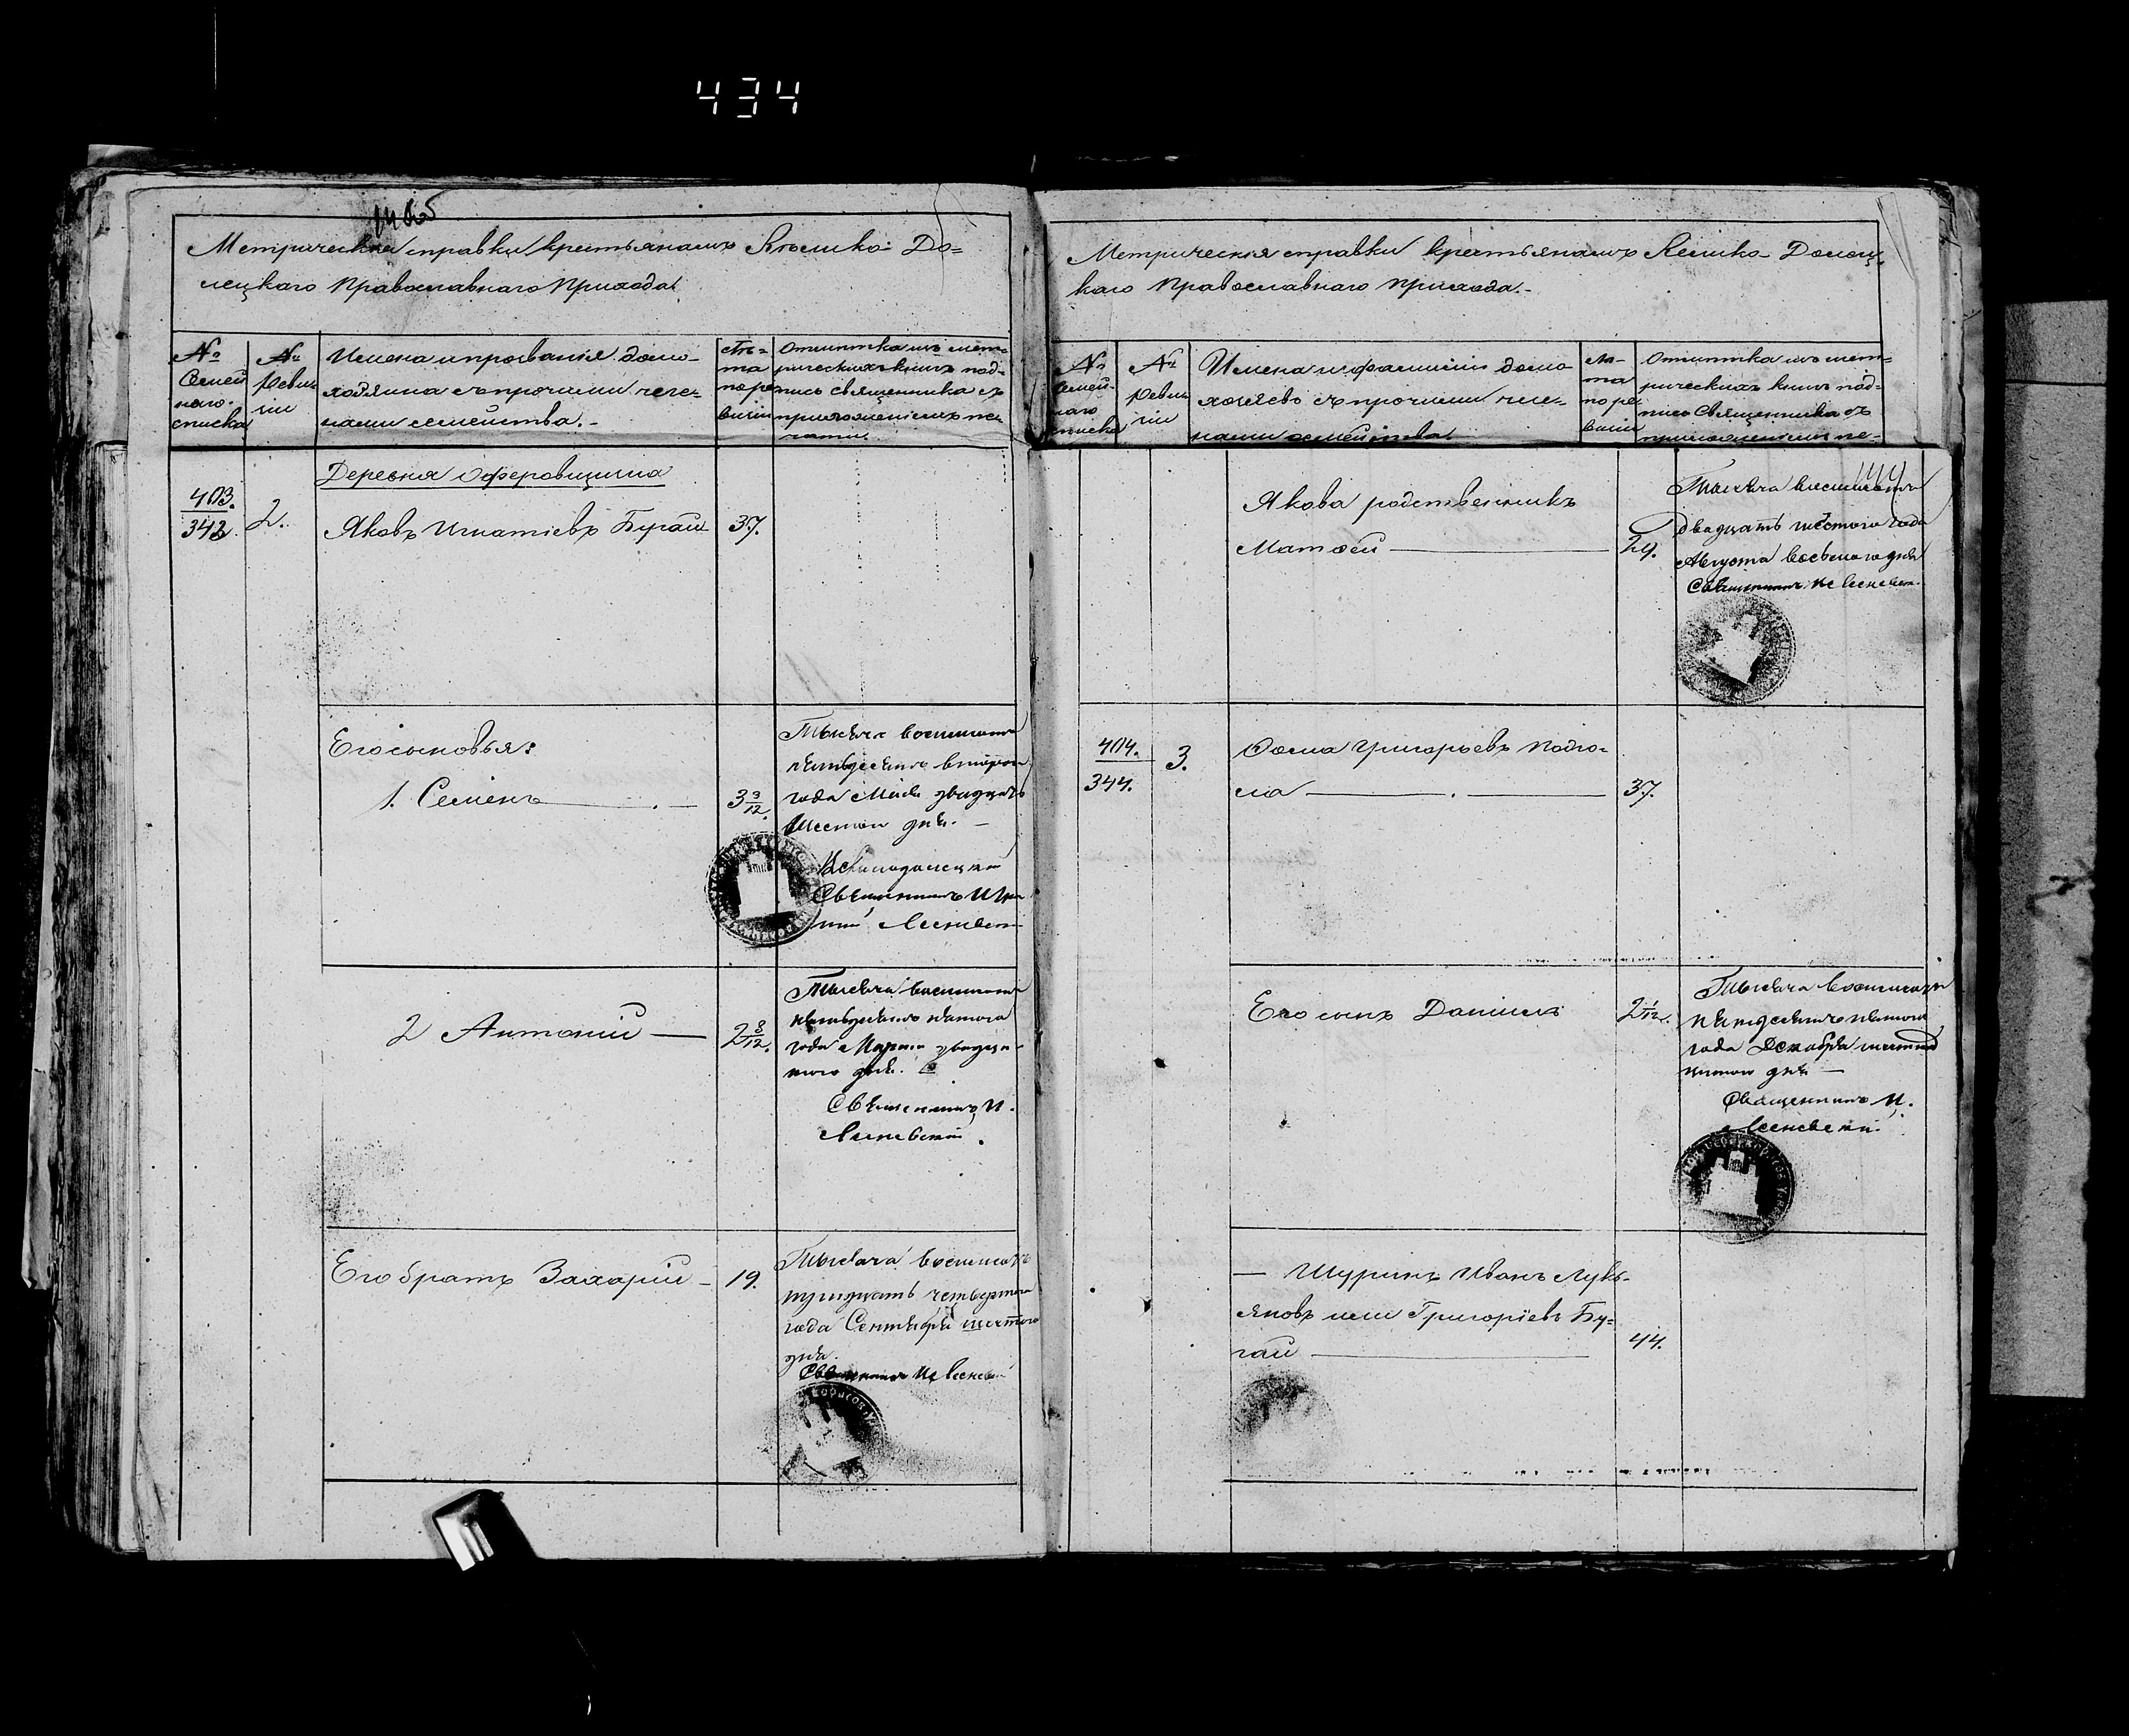 434
Метрическія справки крестьянамъ Велико-До=
лецкаго Православнаго Прихода
№
Семей
наго
списка
№
Реви=
зіи
Имена и прозванія домо-
хозяина съ прочими чле-
нами семейства.-
Лѣ=
та
по ре
визіи
Отмѣтка изъ мет=
рическихъ книгъ под-
пись священника съ
приложеніемъ пе-
чати
Деревня Оферовщина
403.
342
2.
Яковъ Игнатіевъ Бугай
37.
Его сыновья:
1. Семенъ
3 9/12.
Тысяча восемьсотъ
пятьдесятъ втораго
года двадцать
шестаго дня.
Великодолецкій
Священникъ
2 Антоній
2 8/12.
Тысяча восемьсотъ
пятьдесятъ пятаго
года Марта двадца-
таго дня.
Священникъ И.
Его братъ Захарій -
19.
Тысяча восемьсотъ
тридцать четвертаго
года Сентября шестаго
дня.
Священникъ
Метрическія справки крестьянамъ Велико-Долец-
каго Православнаго Прихода.-
№
Семей-
наго
списка
№
Реви
зіи
Имена и фамиліи домо
хозяевъ съ прочими чле-
нами семейства
Лѣ-
та
по ре
визіи
Отмѣтка изъ мет=
рическихъ книгъ под=
пись Священника съ
приложеніемъ пе-
Якова родственникъ
Матѳей
29.
Тысяча восемьсотъ
двадцать шестаго года
Августа восьмаго дня
Священникъ
404.
344.
3.
Ѳома Григорьевъ
37.
Его сынъ Даніилъ
2 1/12.
Тысяча восемьсотъ
пятдесятъ пятаго
года Декабря
дня
Священникъ И.
— Шуринъ Иванъ Лукь-
яновъ или Григоріевъ Бу=
гай
44.